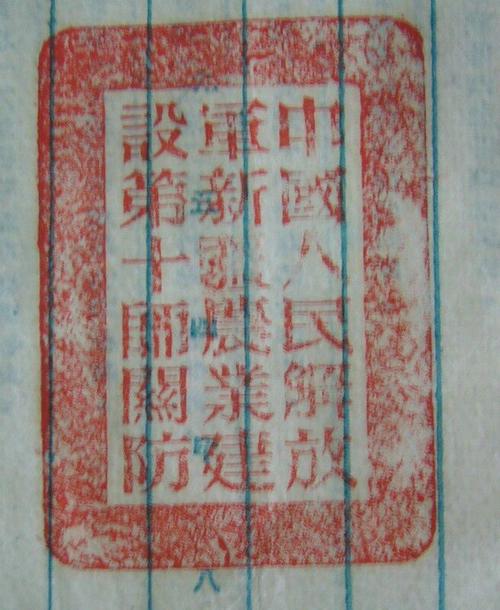 中國人民解放
軍新疆農業建
設第十師關防
八